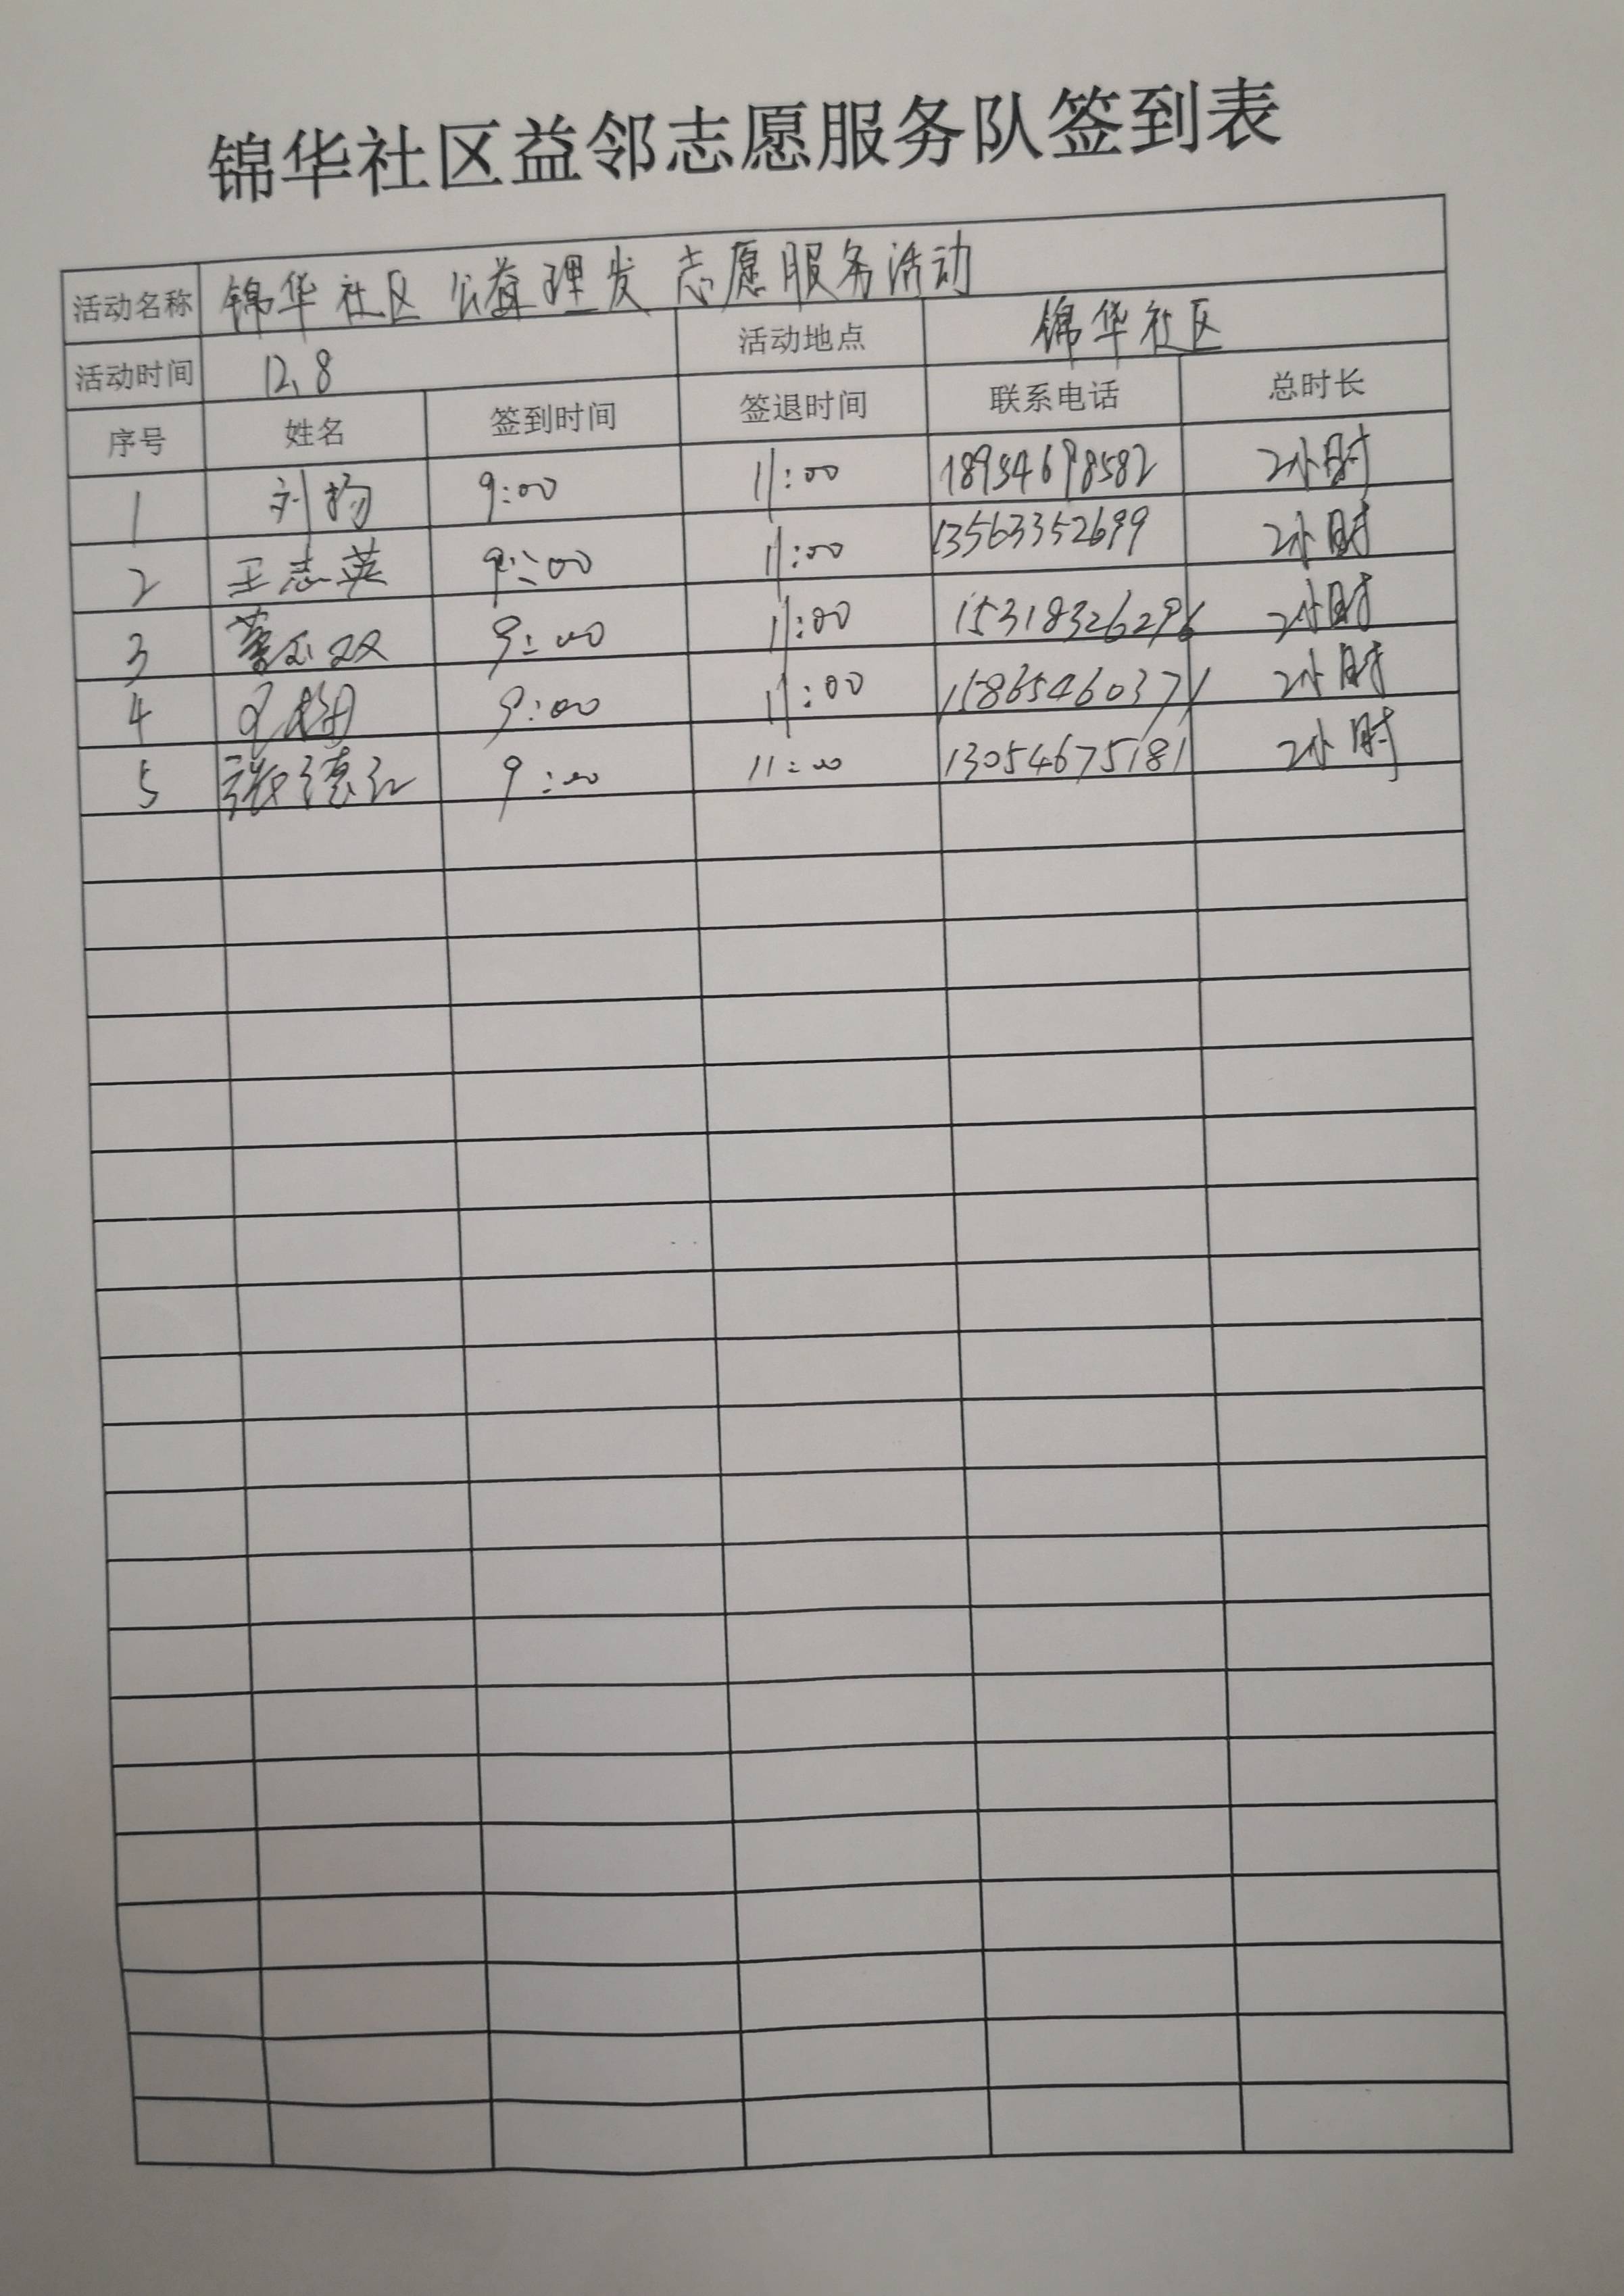 锦华社区益邻志愿服务队签到表
活动名称 锦华社区 公益理发 志愿服务活动
活动时间 12.8 活动地点 锦华社区
序号 姓名 签到时间 签退时间 联系电话 总时长
1 刘扬 9:00 11:00 18954698582 2小时
2 王志英 9:00 11:00 13563352699 2小时
3 9:00 11:00 15318326296 2小时
4 9:00 11:00 15865460371 2小时
5 张德红 9:00 11:00 13054675181 2小时